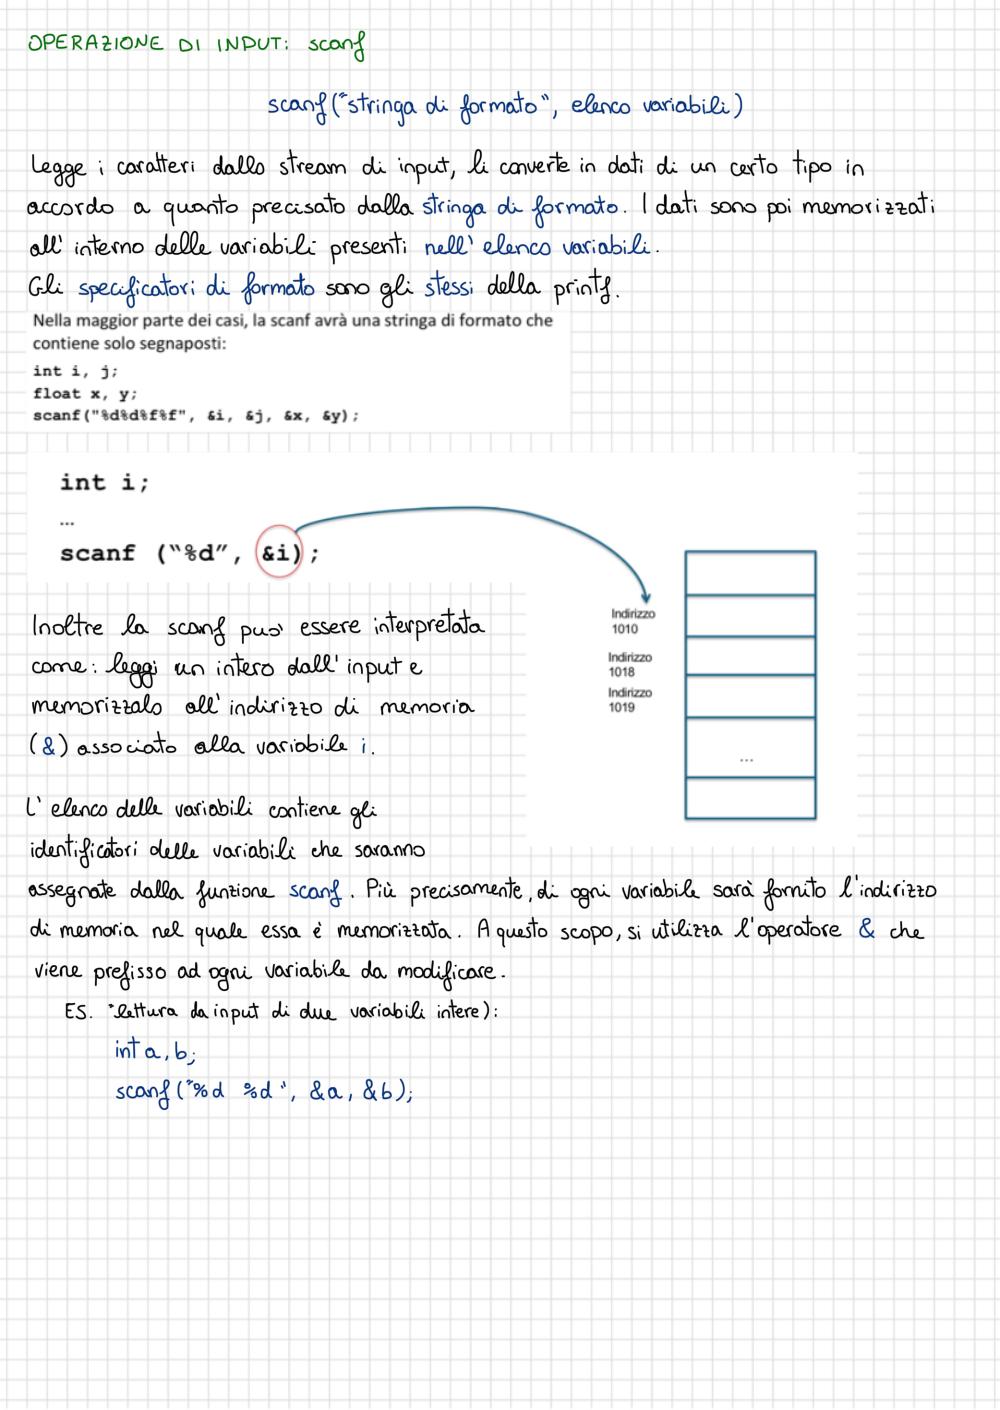 OPERAZIONE DI INPUT: scanf
scanf("stringa di formato", elenco variabili)
Legge i caratteri dallo stream di input, li converte in dati di un certo tipo in
accordo a quanto precisato dalla stringa di formato. I dati sono poi memorizzati
all'interno delle variabili presenti nell'elenco variabili.
Gli specificatori di formato sono gli stessi della printf.
Nella maggior parte dei casi, la scanf avrà una stringa di formato che
contiene solo segnaposti:
int i, j;
float x, y;
scanf("%d%d%f%f", &i, &j, &x, &y);
int i;
...
scanf ("%d", &i);
Indirizzo
1010
Indirizzo
1018
Indirizzo
1019
...
Inoltre la scanf puo' essere interpretata
come: leggi un intero dall'input e
memorizzalo all'indirizzo di memoria
(&) associato alla variabile i.
L'elenco delle variabili contiene gli
identificatori delle variabili che saranno
assegnate dalla funzione scanf. Più precisamente, di ogni variabile sarà fornito l'indirizzo
di memoria nel quale essa è memorizzata. A questo scopo, si utilizza l'operatore & che
viene prefisso ad ogni variabile da modificare.
ES. "lettura da input di due variabili intere):
int a, b;
scanf("%d %d", &a, &b);